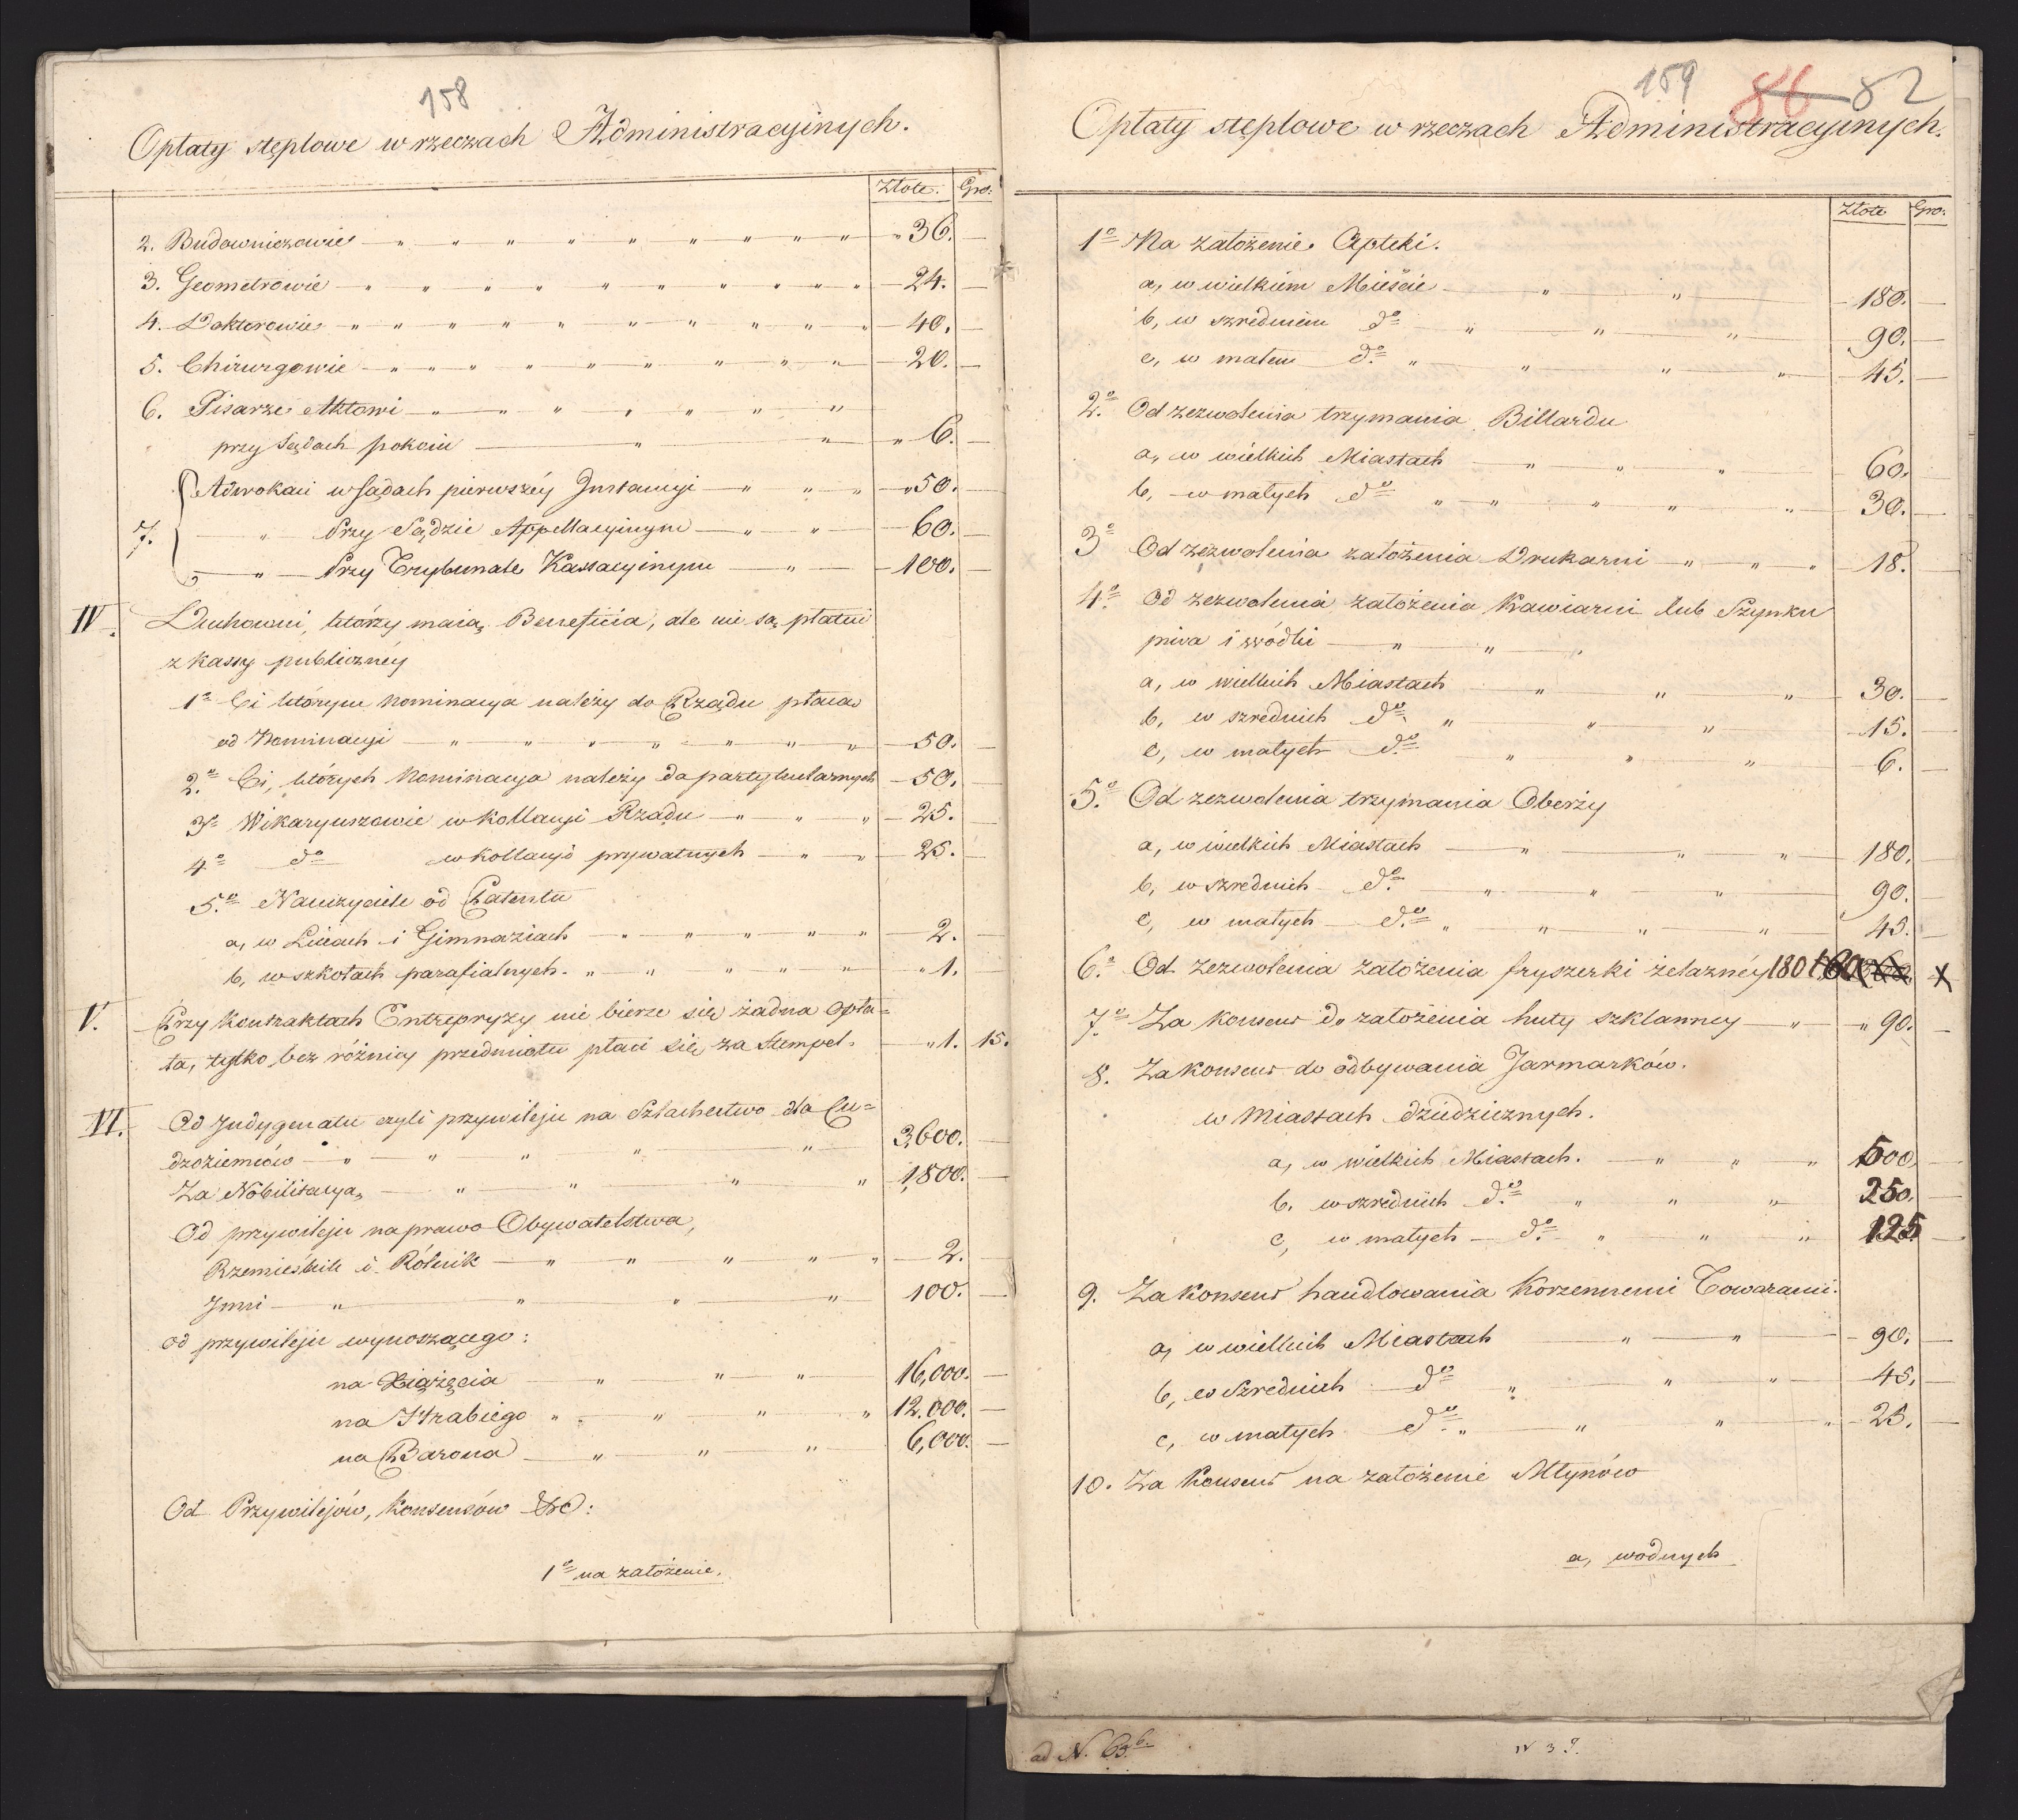 158
Opłaty stęplowe w rzeczach Administracyinych.
Złote. Gro:
2. Budowniczowie 36.
3. Geometrowie 24.
4. Doktorowie 40.
5. Chirurgowie 20.
6. Pisarze Aktowi
przy Sądach pokoiu 6.
Adwokaci w Sądach pierwszéy Instancyi 50.
7. Przy Sądzie Appellacyinym 60.
Przy Trybunale Kassacyinym 100.
IV. Duchowni, którzy maią Beneficia, ale nie są płatni
z kassy publicznéy
1º Ci którym nominacya należy do Rządu płacą
od Nominacyi 50.
2.º Ci, których Nominacya należy do partykularnych 50.
3º Wikaryuszowie w kollacyi Rządu 25.
4º dº w kollacyi prywatnych 25.
5.º Nauczyciele od Patentu
a, w Liceach i Gimnaziach 2.
b, w szkołach parafialnych 1.
V. Przy Kontraktach Entrepryzy nie bierze się żadna opła=
ta, tylko bez różnicy przedmiotu płaci się za Stempel. 1. 15.
VI. Od Indygenatu czyli przywileju na Szlachectwo dla Cu=
dzoziemców 3,600.
Za Nobilitacyą 1,800.
Od przywileju na prawo Obywatelstwa,
Rzemieślnik i Rólnik 2.
Inni 100.
od przywileju wynoszącego:
na Xiążęcia 16,000.
na Hrabiego 12.000.
na Barona 6,000.
Od Przywilejów, Konsensów &c:
1º na założenie.
159 86 82
Opłaty stęplowe w rzeczach Administracyinych.
Złote Gro:
1º Na założenie Apteki.
a, w wielkiém Mieście 180.
b, w szredniem dº 90.
c, w małem d.º 45.
2.º Od zezwolenia trzymania Billardu
a, w wielkich Miastach 60.
b, w małych dº 30.
3º Od zezwolenia założenia Drukarni 18.
4.º Od zezwolenia założenia Kawiarni lub Szynku
piwa i wódki
a, w wielkich Miastach 30.
b, w szrednich dº. 15.
c, w małych d.º 6.
5.º Od zezwolenia trzymania Oberży
a, w wielkich Miastach 180.
b, w szrednich d.º 90.
c, w małych d.º 45.
6.º Od zezwolenia założenia fryszerki żelaznéy 180 X
7º Za konsens do założenia huty szklanney 90.
8. Za konsens do odbywania Jarmarków.
w Miastach dziedzicznych.
a, w wielkich Miastach. 500.
b, w szrednich d.º 250.
c, w małych d.º 125
9. Za konsens handlowania Korzennemi Towarami.
a, w wielkich Miastach 90.
b, w Szrednich dº 45.
c, w małych dº 25.
10. Za Konsens na założenie Młynów
a, wodnych
ad N. 63